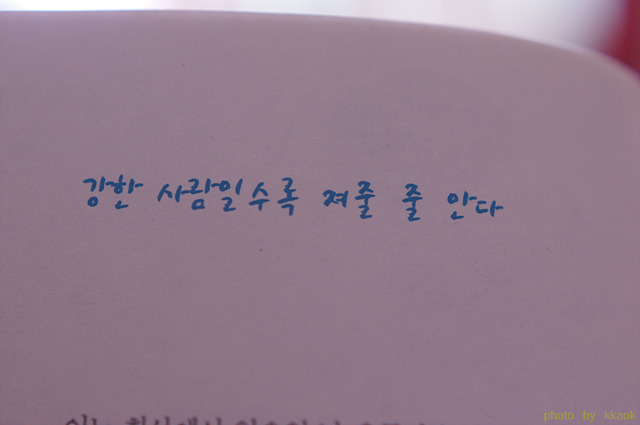 강한 사람일수록 져줄 줄 안다
photo by kkaok